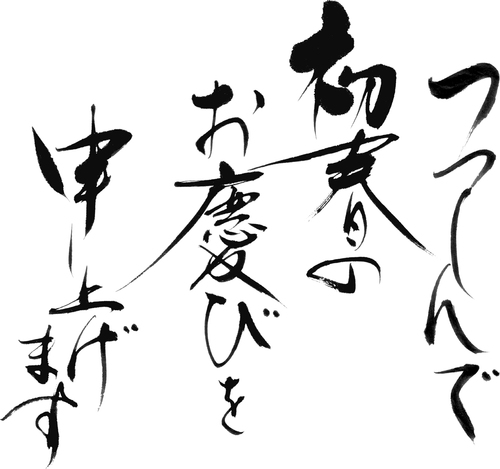 つつしんで
初春の
お慶びを
申し上げます